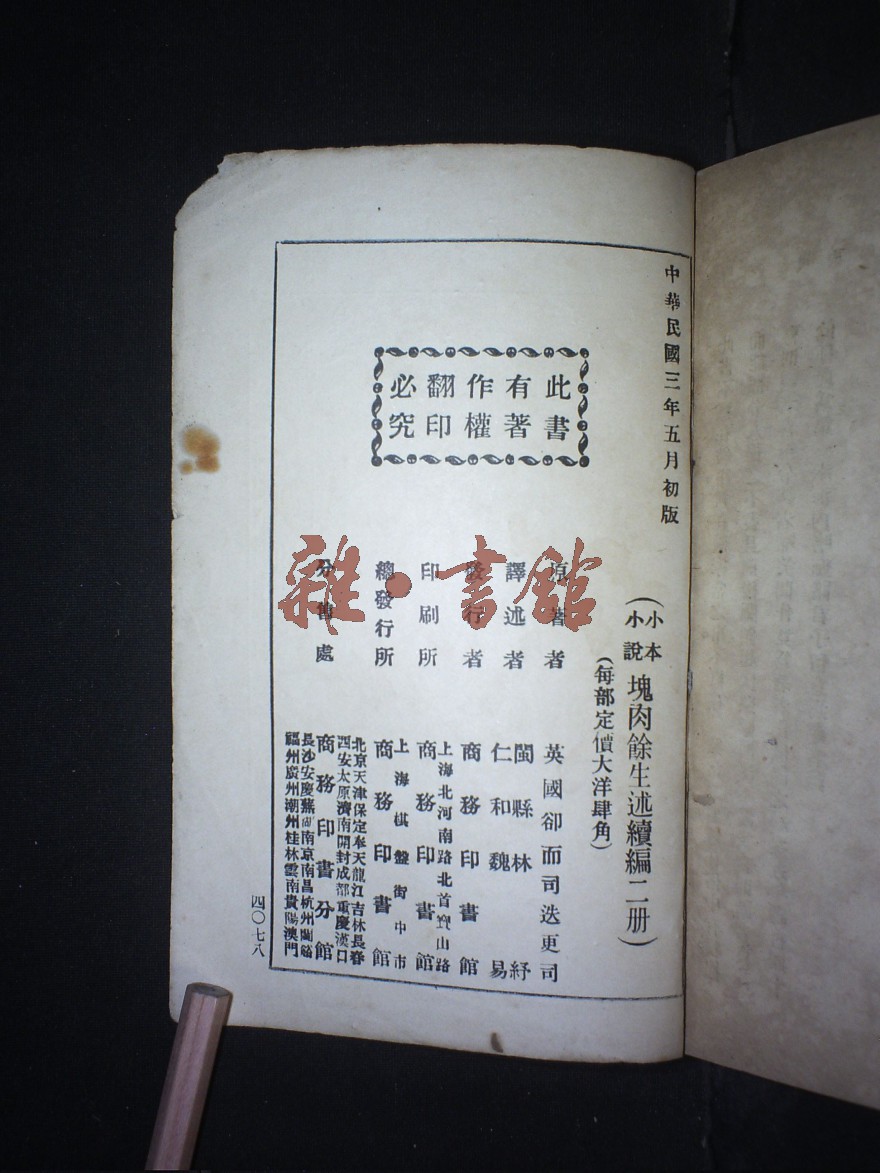 中華民國三年五月初版
此書
有著
作權
翻印
必究
(小本小說塊肉餘生述續編二册)
(每部定價大洋肆角)
原著者 英國卻而司迭更司
譯述者 閩縣林紓
仁和魏易
發行者 商務印書館
印刷所 上海北河南路北首寶山路
商務印書館
總發行所 上海棋盤街中市
商務印書館
分售處 北京天津保定奉天龍江吉林長春
西安太原濟南開封成都重慶漢口
商務印書分館
長沙安慶蕪湖南京南昌杭州蘭谿
福州廣州潮州桂林雲南貴陽澳門
四〇七八
雜·書館